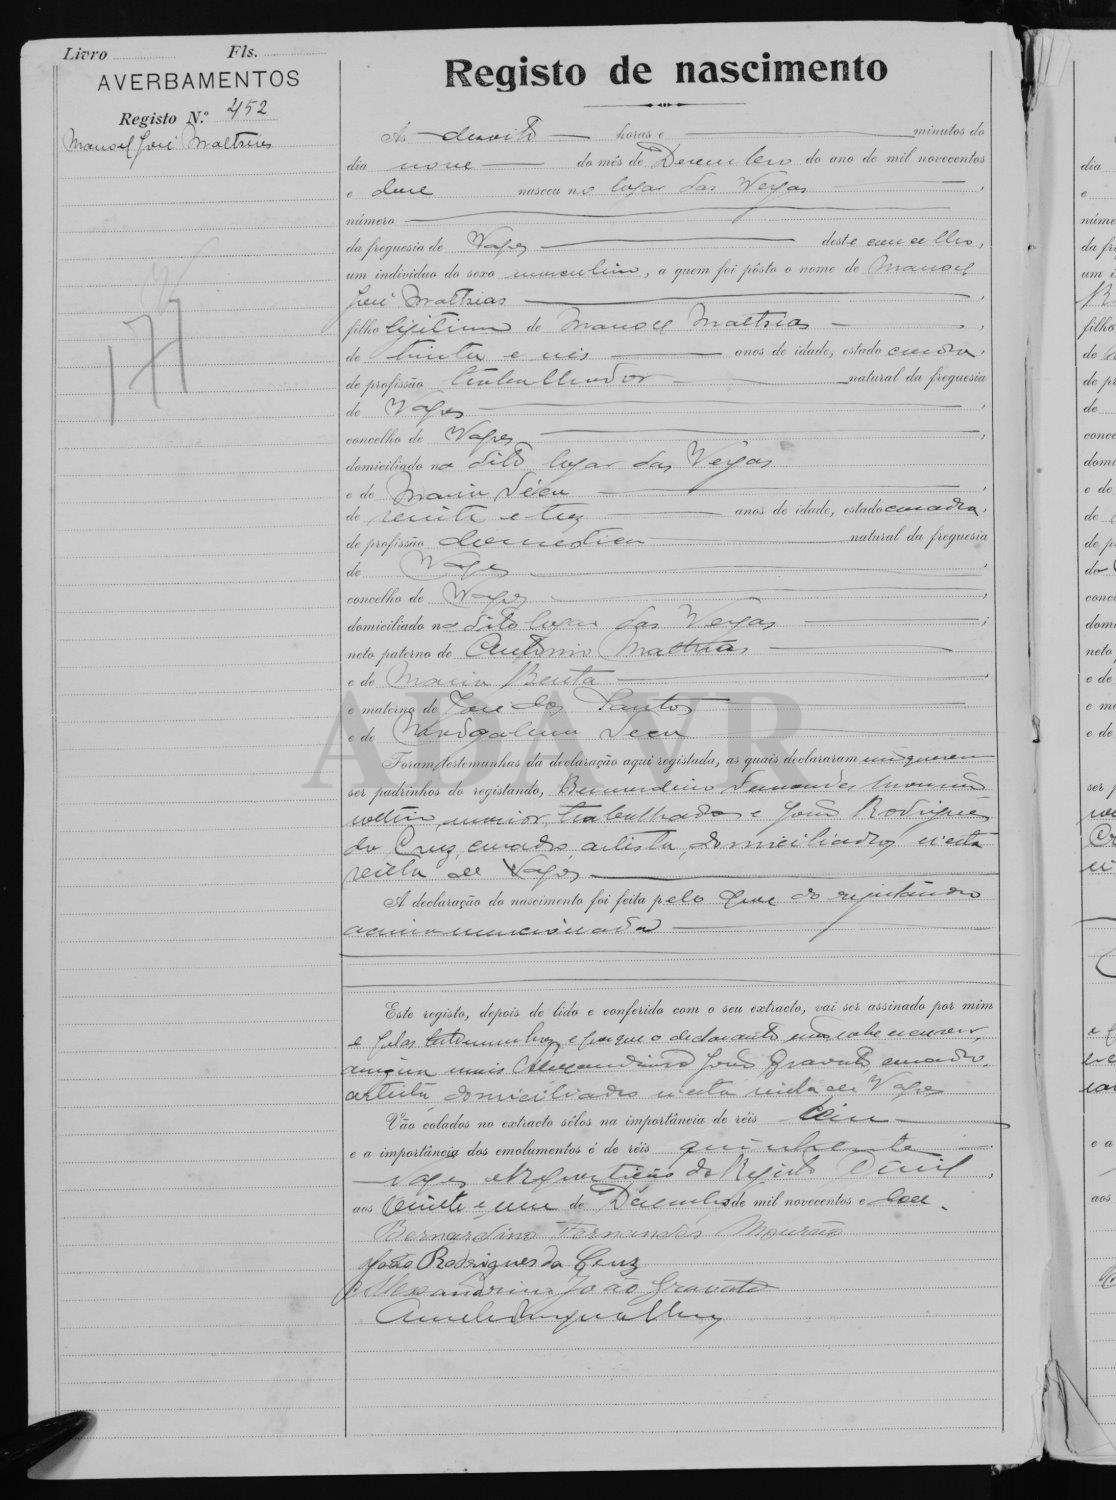 Livro Fls.
AVERBAMENTOS
Registo N.º 452
Manoel José Mathias
177
Registo de nascimento
Ás dezoito horas e minutos do
dia nove do mês de Dezembro do ano de mil novecentos
e doze nasceu no logar das Vergas,
número
da freguesia de Vagos deste concelho,
um individuo do sexo masculino, a quem foi pôsto o nome de Manoel
José Mathias,
filho legitimo de Manoel Mathias,
de trinta e seis anos de idade, estado casado,
de profissão trabalhador natural da freguesia
de Vagos,
concelho de Vagos,
domiciliado no dito logar das Vergas
e de Maria Séca,
de trinta e trez anos de idade, estado casada,
de profissão domestica natural da freguesia
de Vagos,
concelho de Vagos,
domiciliado no dito logar das Vergas;
neto paterno de Antonio Mathias
e de Maria Benta,
e materno de José dos Santos
e de Magdalena Seca
Foram testemunhas da declaração aqui registada, as quais declararam
ser padrinhos do registando, Bernardino Fernandes Mourão
solteiro, maior, trabalhador e João Rodrigues
da Cruz, casado, artista, domiciliados n'esta
vila de Vagos.
A declaração do nascimento foi feita pelo pae do registando
acima mencionado
Este registo, depois de lido e conferido com o seu extracto, vai ser assinado por mim
e pelas testemunhas, e porque o declarante não sabe escrever,
assigna mais Alexandrino João Gravato, casado,
artista, domiciliados n'esta vila de Vagos
Vão colados no extracto sêlos na importância de réis cem
e a importância dos emolumentos é de réis quinhentos
Vagos e Repartição do Registo Civil,
aos vinte e um de Dezembro de mil novecentos e doze.
Bernardino Fernandes Mourão
João Rodrigues da Cruz
Alexandrino João Gravato
ADAVR